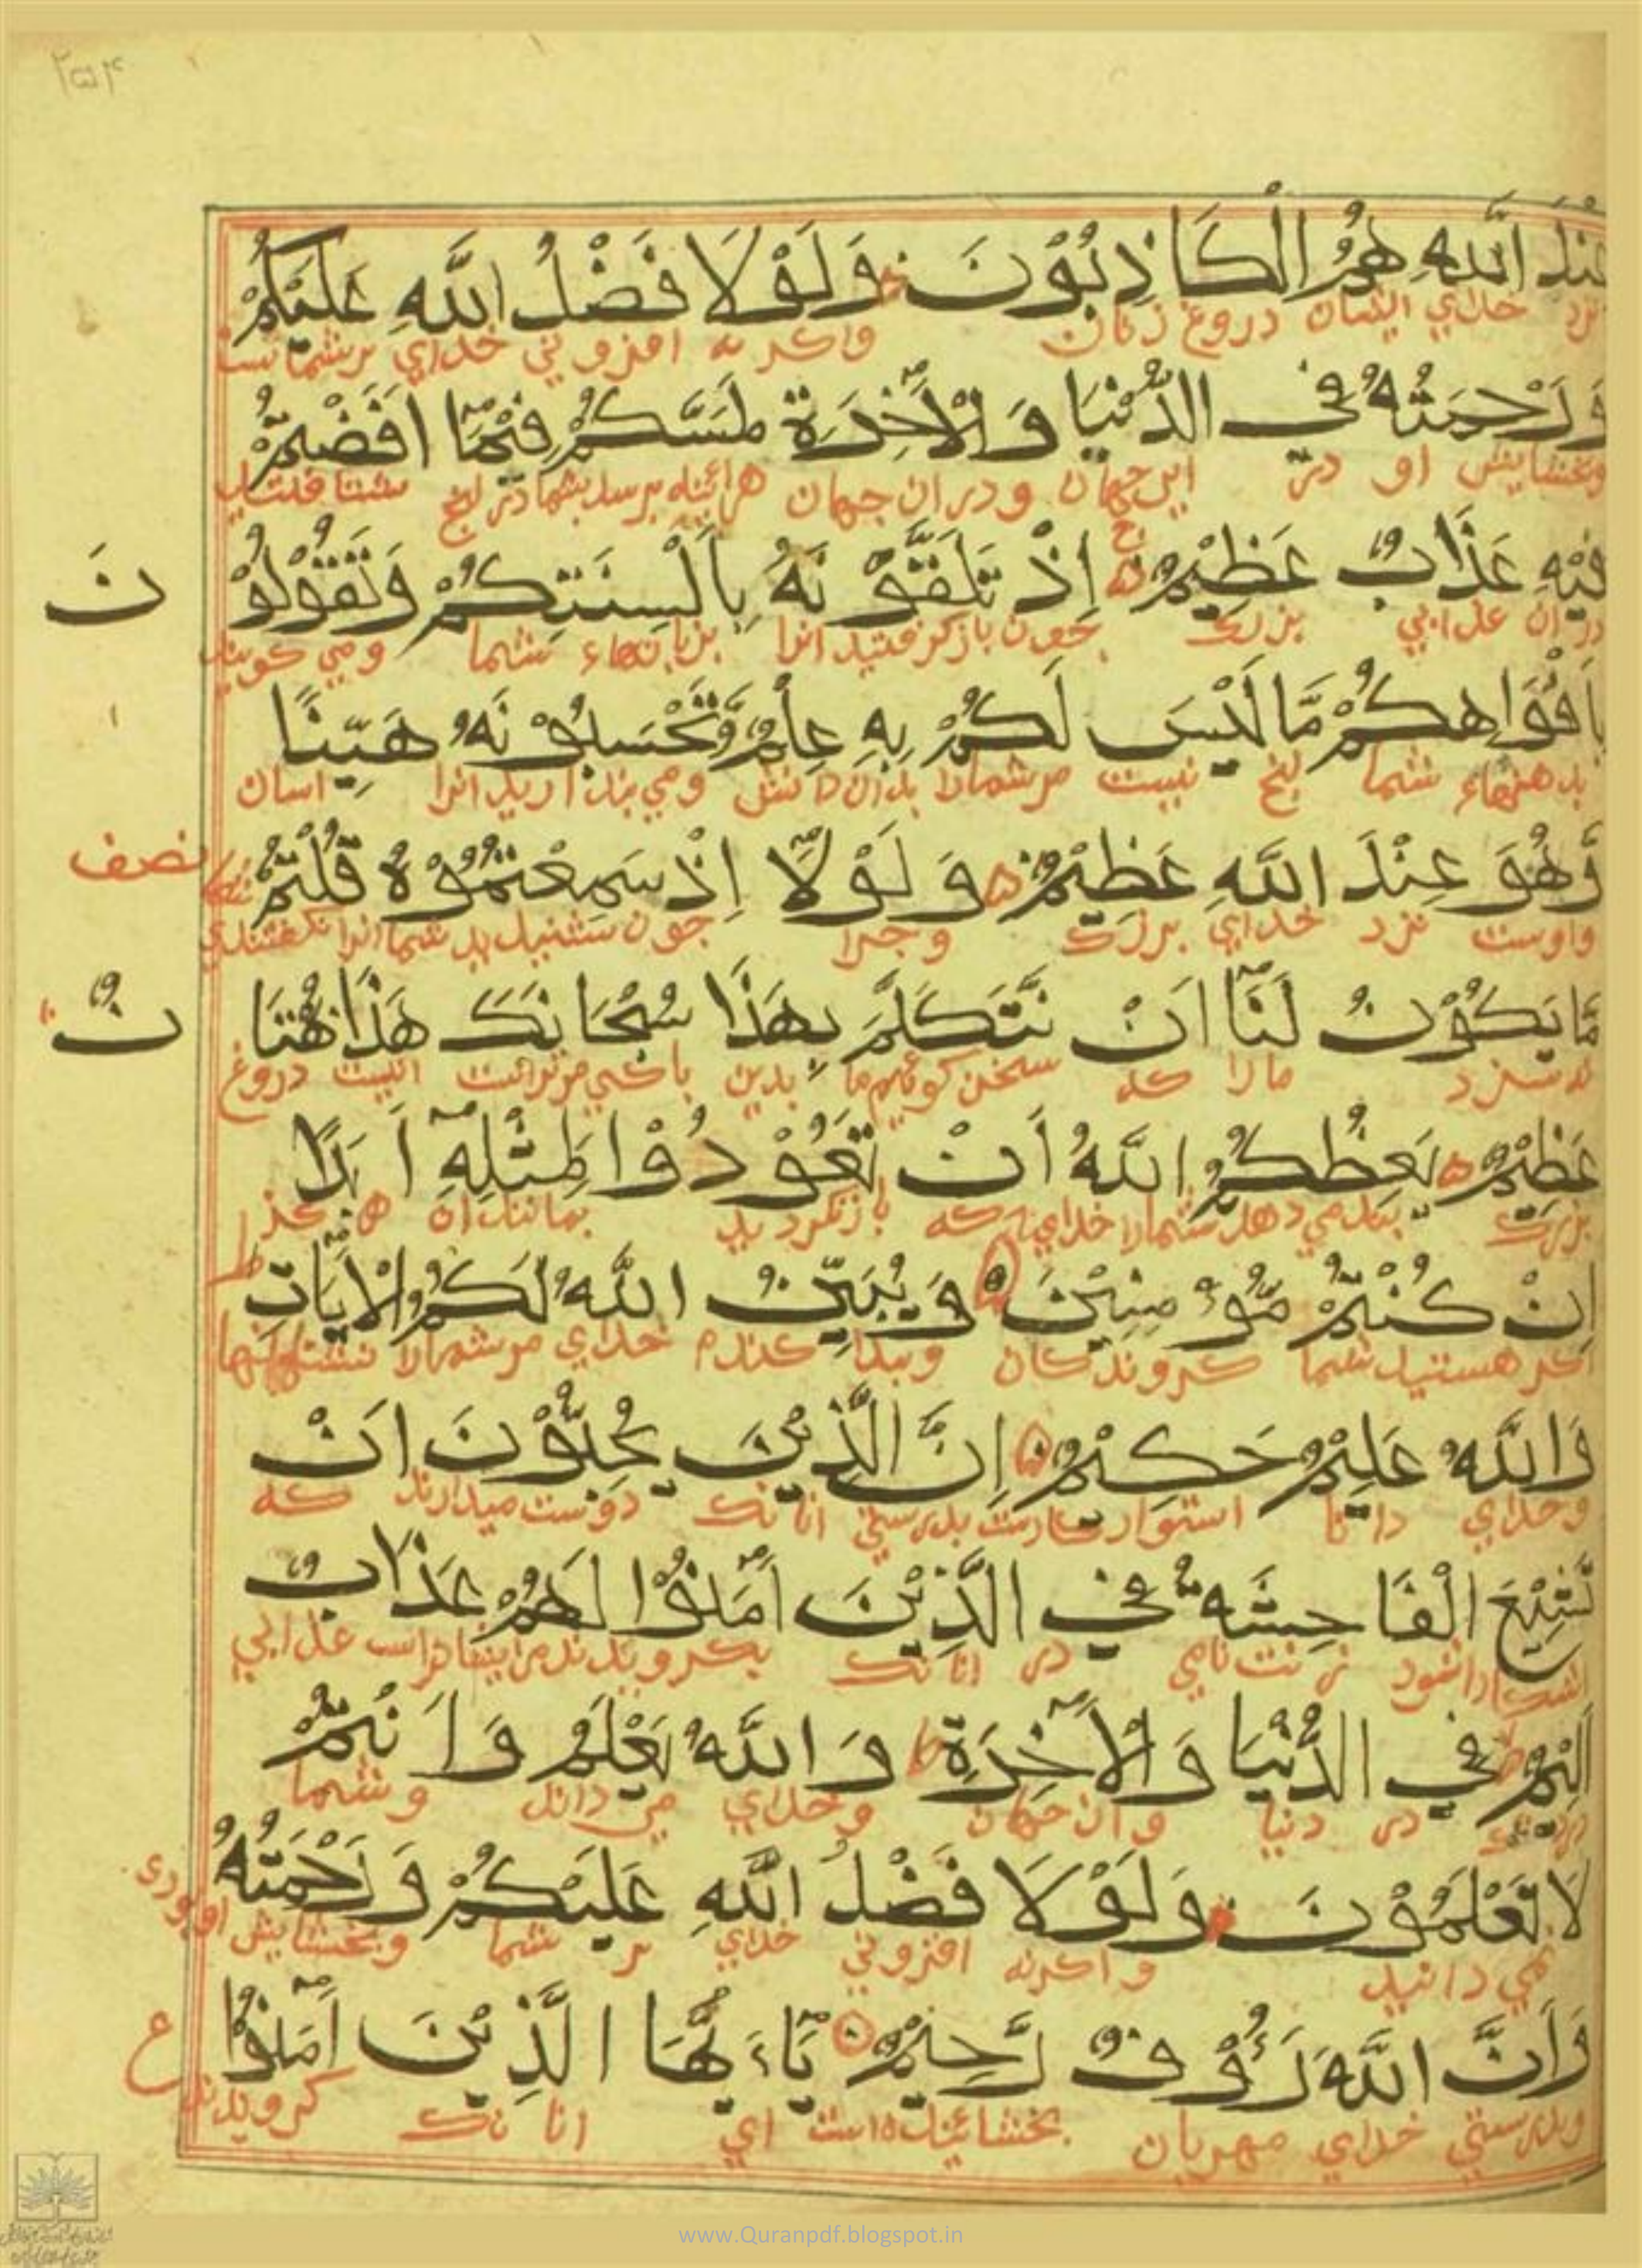 ۲۵۴
عِنْدَ اللَّهِ هُمُ الْكَاذِبُوْنَ وَلَوْلَا فَضْلُ اللَّهِ عَلَيْكُمْ
نزد خدای ایشان دروغ زنان واكر نه افزونی خدای برشماست
وَرَحْمَتُهُ فِي الدُّنْيَا وَالْآخِرَةِ لَمَسَّكُمْ فِيْمَا اَفَضْتُمْ
وبخشایش او در این جهان ودران جهان هرائینه برسد بشما در
فِيْهِ عَذَابٌ عَظِيْمٌ اِذْ تَلَقَّوْنَهُ بِاَلْسِنَتِكُمْ وَتَقُوْلُوْ نَ
در ان عذابی بزرك چون بازكرفتید انرا بزبانهاء شما ومی كویید
بِاَفْوَاهِكُمْ مَّا لَيْسَ لَكُمْ بِهِ عِلْمٌ وَّتَحْسَبُوْنَهُ هَيِّنًا
بدهنهاء شما نیست مرشمارا بدان دانش ومی پندارید انرا اسان
وَّهُوَ عِنْدَ اللَّهِ عَظِيْمٌ وَلَوْلَا اِذْ سَمِعْتُمُوْهُ قُلْتُمْ نصف
واوست نزد خدای بزرك وچرا چون شنیدید شما انرا
مَّا يَكُوْنُ لَنَا اَنْ نَّتَكَلَّمَ بِهَذَا سُبْحَانَكَ هَذَا بُهْتَا نٌ
نه سزد مارا كه سخن كوئیم ما بدین پاكی مرتراست اینست دروغ
عَظِيْمٌ يَعِظُكُمُ اللَّهُ اَنْ تَعُوْدُوْا لِمِثْلِهِ اَبَدًا
بزرك پند می دهد شمارا خدای كه بازنكردید بمانند ان هركز
اِنْ كُنْتُمْ مُّؤْمِنِيْنَ وَيُبَيِّنُ اللَّهُ لَكُمُ الْاٰيَاتِ ط
اكر هستید شما كروندكان وپیدا كندم خدای مرشمارا نشانها
وَاللَّهُ عَلِيْمٌ حَكِيْمٌ اِنَّ الَّذِيْنَ يُحِبُّوْنَ اَنْ
وخدای دانا استوار كارست بدرستی انانك دوست میدارند كه
تَشِيْعَ الْفَاحِشَةُ فِي الَّذِيْنَ اٰمَنُوْا لَهُمْ عَذَابٌ
اشكارا شود زشت نامی در انانك بكرویدند مراینهاراست عذابی
اَلِيْمٌ فِي الدُّنْيَا وَالْاٰخِرَةِ وَاللَّهُ يَعْلَمُ وَاَنْتُمْ
در دنیا وان جهان وخدای می داند وشما
لَا تَعْلَمُوْنَ وَلَوْلَا فَضْلُ اللَّهِ عَلَيْكُمْ وَرَحْمَتُهُ
نمی دانید واكرنه افزونی خدای بر شما وبخشایش او
وَاَنَّ اللَّهَ رَؤُوْفٌ رَّحِيْمٌ يَاءَيُّهَا الَّذِيْنَ اٰمَنُوْا ع
وبدرستی خدای مهربان بخشاینده است ای انانك كرویدند
www.Quranpdf.blogspot.in